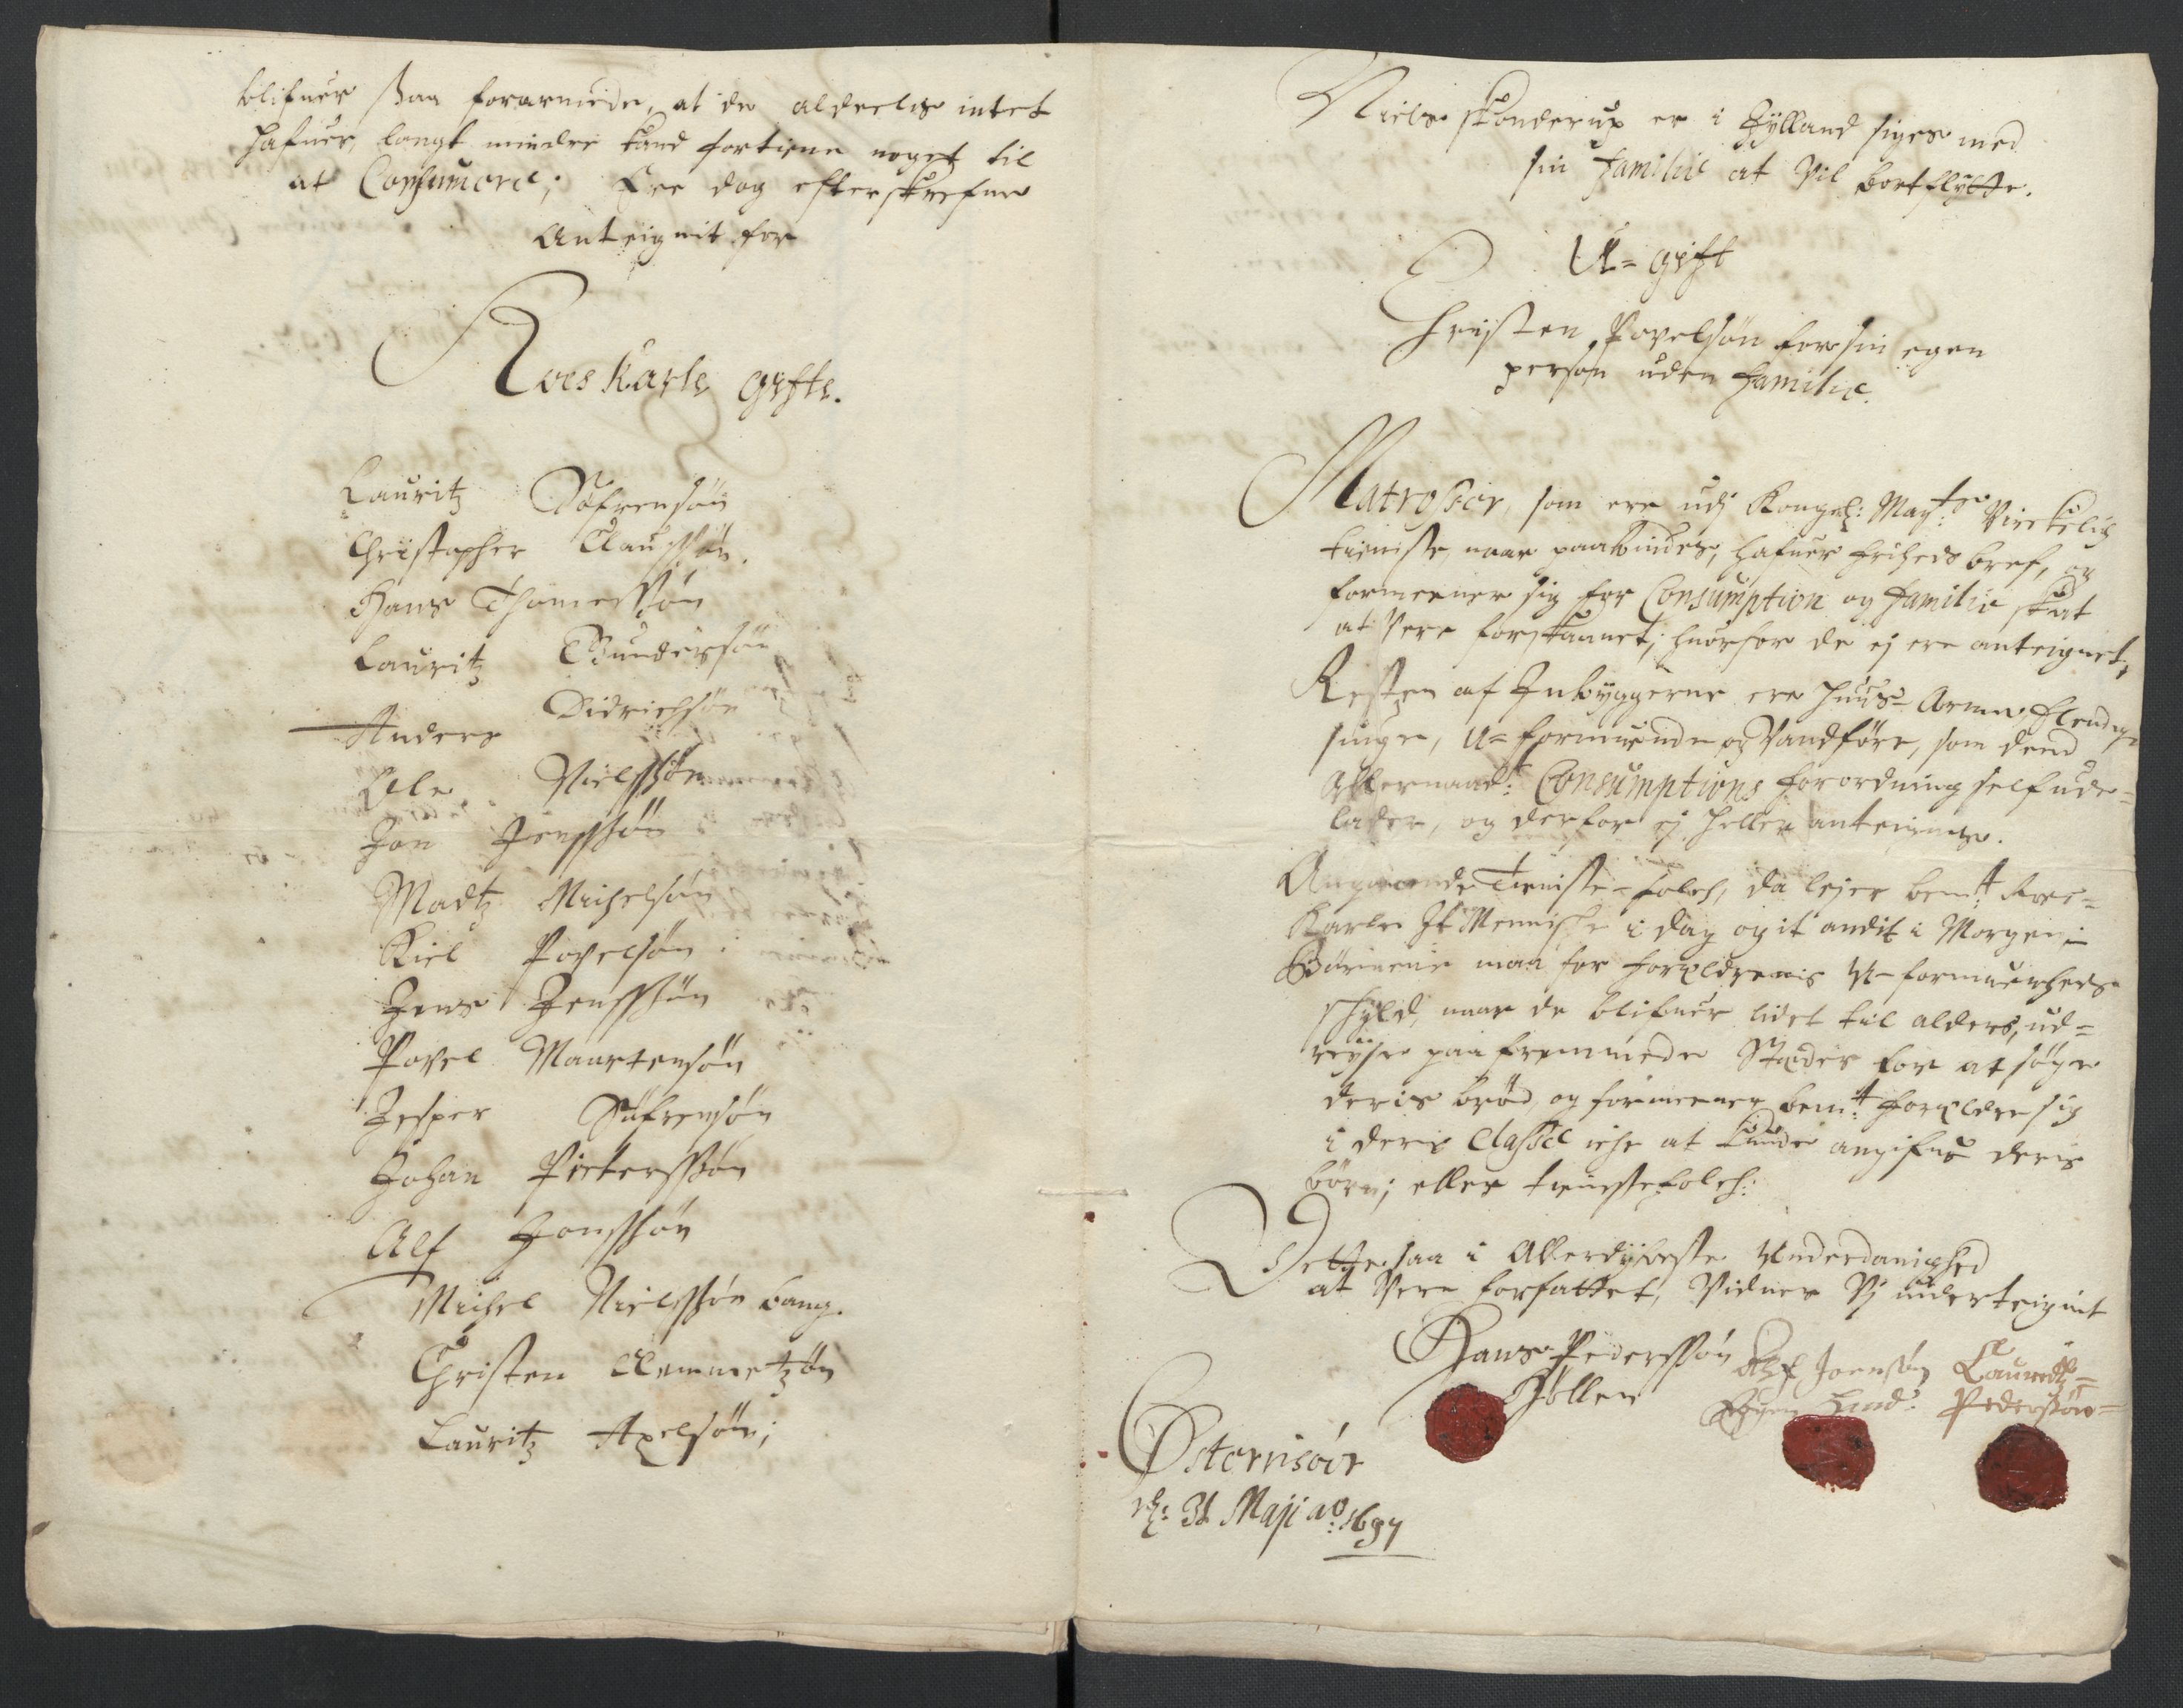 blifuer saa forarmede, at de aldeelis intet
hafuer, langt mindre kand fortiene noget til
at Consumere; Ere dog efterskrefne
Anteignit for
Roes Karle gifte.
Lauritz Søfrensøn
Christopher Claussøn.
Hans Thomessøn
Lauritz Gundersøn
Anders Didrichsøn
Ole Nielssøn
Jon Jenssøn
Madtz Michelsøn
Kiel Povelsøn
Jens Jenssøn
Povel Maartensøn
Jesper Søfrensøn
Johan Pittersøn
Alf Jonssøn
Michel Nielssøn bang.
Christen Clemmetzøn
Lauritz Axelsøn;
Niels Skonderup er i Jylland siges med
sin Familie at Vil bortflytte.
U-gift
Christen Povelsøn for sin egen
person uden Familie.
Matrosser, som ere udj Kongel: Mayts: Virkelig
tieniste, naar paabindes, hafuer friheds bref, og
formeener sig for Consumption og Familie skat
at Vere forskaanet; huorfor de ej ere anteignet,
Resten af Inbyggerne ere huus-Arme, Elendige
siuge, U-formuende og Vandføre, som dend
Allernaad: Consumptions forordning self ude-
lader, og derfor ej heller anteignes.
Angaaende Tieniste-folch, da lejer bemt: Roes-
Karle It Menniske i dag og it andit i Morgen;
Børnene maa for forældrenis U-formuenheds
schyld, naar de blifuer lidet til alders, ud-
reyse paa fremmede Stæder for at søge
deris brød, og formeener bemt: Forældre sig
i deris Classe iche at kunde angifue deris
børn; eller tienistefolch:
Dette saa i Allerdybeste Underdanighed
at Vere forfattet, Vidner Vj underteignet
Hans Pederssøn Alf Joensøn Lauredtz
Høllen Egen Hand: Pedersøn
Østerrisøer
d: 31 Maji ao: 1697